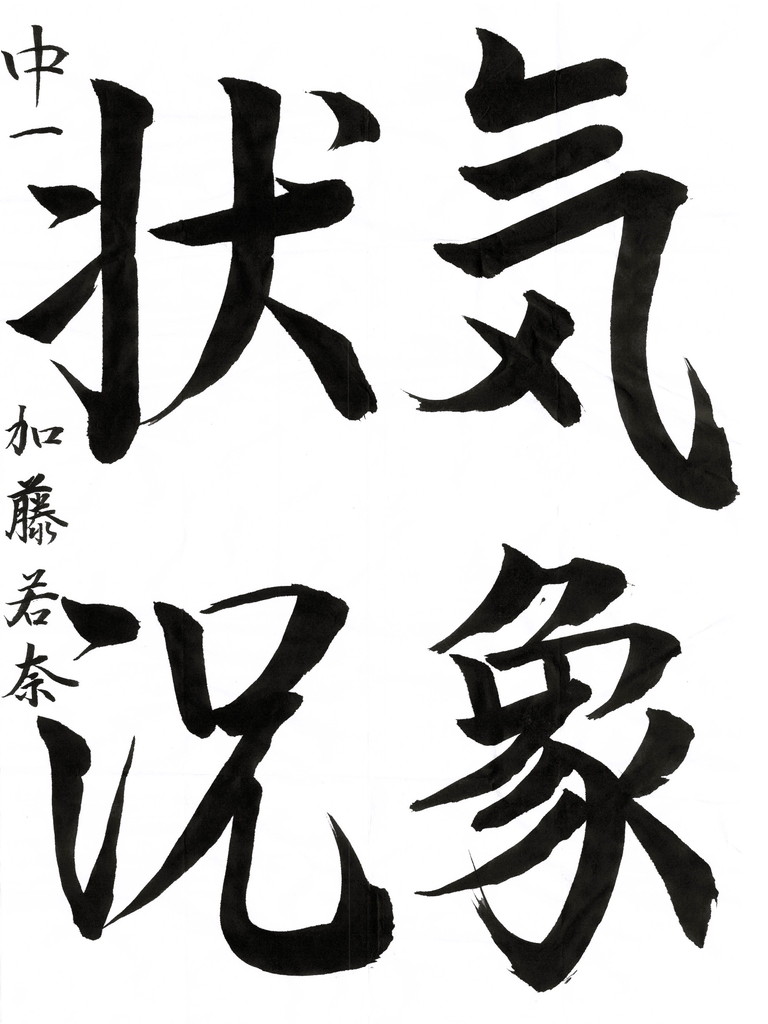 気象
状況
中一 加藤若奈